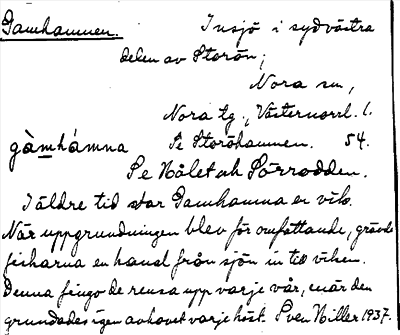 Gamhamnen. Insjö i sydvästra
delen av Storön;
Nora sn,
Nora tg., Västernorrl. l.
gàmhámna Se Storöhamnen. 54.
Se Hålet och Sörrodden.
I äldre tid var Gamhamna en vik.
När uppgrundningen blev för omfattande, grävde
fiskarna en kanal från sjön in till viken.
Denna fingo de rensa upp varje vår, enär den
grundades igen av havet varje höst. Sven Hiller 1937.